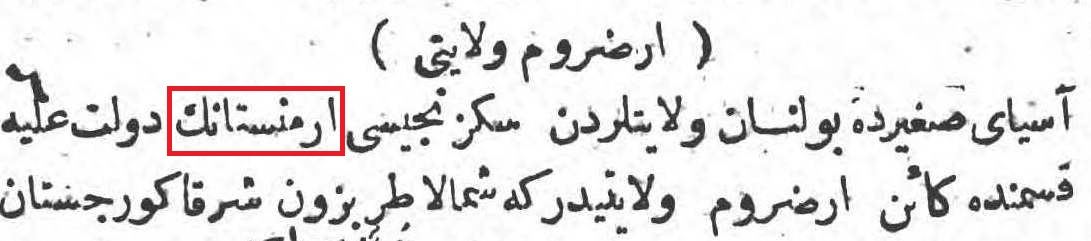 ( ارضروم ولايتى )
آسياى صغيرده بولنان ولايتلردن سكزنجيسى ارمنستانك دولت عليه
قسمنده كائن ارضروم ولايتيدر كه شمالا طربزون شرقا كورجستان